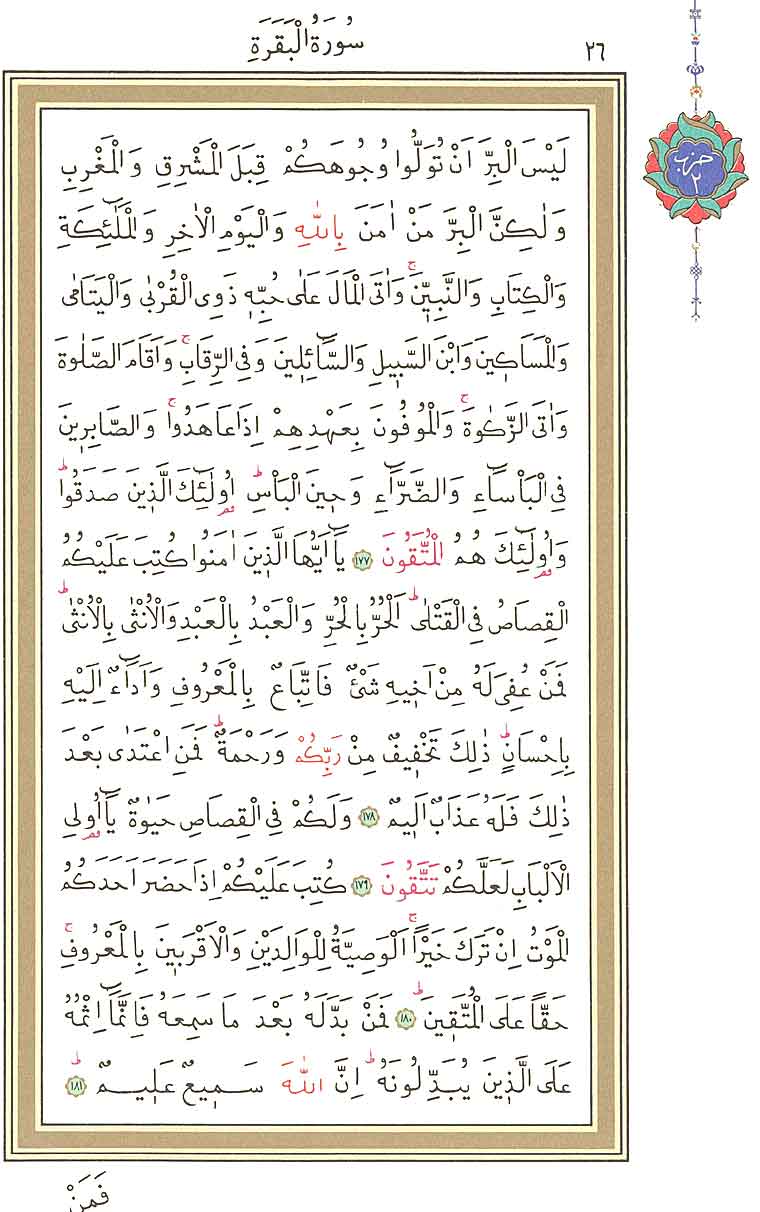 سُورَةُ الْبَقَرَةِ ٢٦
حزب ٢
لَيْسَ الْبِرَّ اَنْ تُوَلُّوا وُجُوهَكُمْ قِبَلَ الْمَشْرِقِ وَالْمَغْرِبِ
وَلٰكِنَّ الْبِرَّ مَنْ اٰمَنَ بِاللّٰهِ وَالْيَوْمِ الْاٰخِرِ وَالْمَلٰٓئِكَةِ
وَالْكِتَابِ وَالنَّبِيّٖنَۚ وَاٰتَى الْمَالَ عَلٰى حُبِّهٖ ذَوِى الْقُرْبٰى وَالْيَتَامٰى
وَالْمَسَاكٖينَ وَابْنَ السَّبٖيلِ وَالسَّٓائِلٖينَ وَفِى الرِّقَابِۚ وَاَقَامَ الصَّلٰوةَ
وَاٰتَى الزَّكٰوةَۚ وَالْمُوفُونَ بِعَهْدِهِمْ اِذَا عَاهَدُواۚ وَالصَّابِرٖينَ
فِى الْبَأْسَٓاءِ وَالضَّرَّٓاءِ وَحٖينَ الْبَأْسِؕ اُولٰٓئِكَ الَّذٖينَ صَدَقُواؕ
وَاُولٰٓئِكَ هُمُ الْمُتَّقُونَ ١٧٧ يَٓا اَيُّهَا الَّذٖينَ اٰمَنُوا كُتِبَ عَلَيْكُمُ
الْقِصَاصُ فِى الْقَتْلٰىؕ اَلْحُرُّ بِالْحُرِّ وَالْعَبْدُ بِالْعَبْدِ وَالْاُنْثٰى بِالْاُنْثٰىؕ
فَمَنْ عُفِىَ لَهُ مِنْ اَخٖيهِ شَىْءٌ فَاتِّبَاعٌ بِالْمَعْرُوفِ وَاَدَٓاءٌ اِلَيْهِ
بِاِحْسَانٍؕ ذٰلِكَ تَخْفٖيفٌ مِنْ رَبِّكُمْ وَرَحْمَةٌؕ فَمَنِ اعْتَدٰى بَعْدَ
ذٰلِكَ فَلَهُ عَذَابٌ اَلٖيمٌ ١٧٨ وَلَكُمْ فِى الْقِصَاصِ حَيٰوةٌ يَٓا اُولِى
الْاَلْبَابِ لَعَلَّكُمْ تَتَّقُونَ ١٧٩ كُتِبَ عَلَيْكُمْ اِذَا حَضَرَ اَحَدَكُمُ
الْمَوْتُ اِنْ تَرَكَ خَيْرًاۚ اَلْوَصِيَّةُ لِلْوَالِدَيْنِ وَالْاَقْرَبٖينَ بِالْمَعْرُوفِۚ
حَقًّا عَلَى الْمُتَّقٖينَؕ ١٨٠ فَمَنْ بَدَّلَهُ بَعْدَ مَا سَمِعَهُ فَاِنَّمَٓا اِثْمُهُ
عَلَى الَّذٖينَ يُبَدِّلُونَهُؕ اِنَّ اللّٰهَ سَمٖيعٌ عَلٖيمٌؕ ١٨١
فَمَنْ